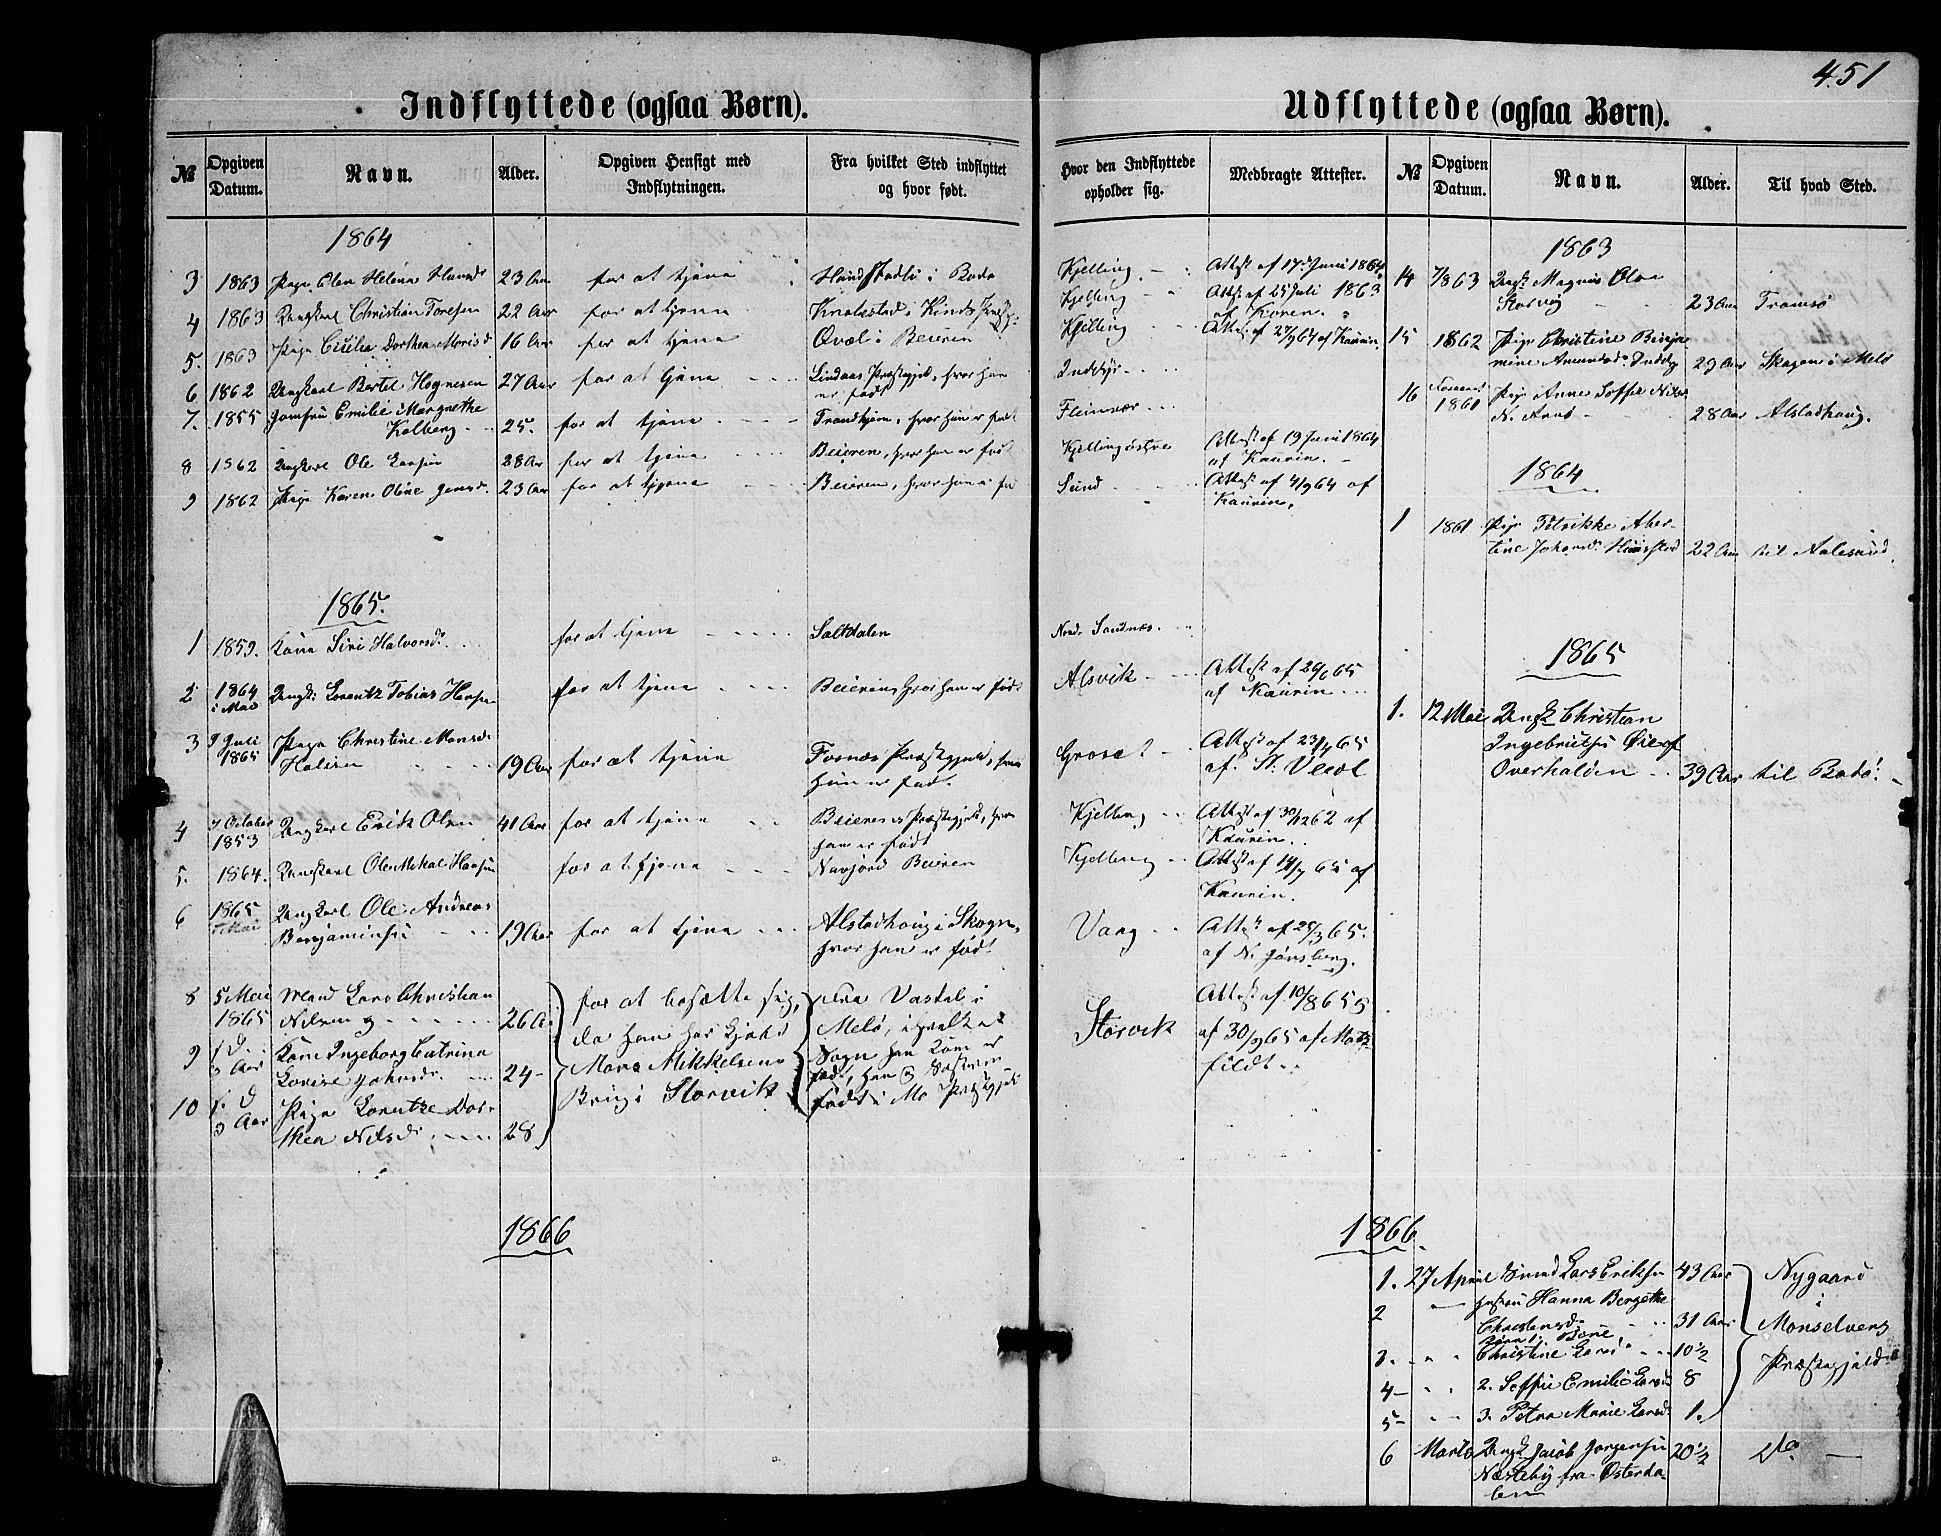 451
Indflyttede (ogsaa Børn).
Udflyttede (ogsaa Børn).
№ Opgiven Datum. Navn. Alder. Opgiven Hensigt med Indflytningen. Fra hvilket Sted indflyttet og hvor født. Hvor den Indflyttede opholder sig. Medbragte Attester.
№ Opgiven Datum. Navn. Alder. Til hvad Sted.
1864
3 1863 Pige Elen Helena Hansd. 23 Aar for at tjene i Bodø Kjelling Attest af 17de Juni 1864
4 1863 Ungkarl Christian Toresen 22 Aar for at tjene Kjelling Attest af 25 Juli 1863
5. 1863 Pige Cecilia Dorthea 16 Aar for at tjene i Beieren Kjelling Attest af 27/9 64 af Kaurin.
6 1862 Ungkarl Bertel Hognesen 27 Aar for at tjene Lindaas Præstegjeld, hvor han
er født
7. 1855 Jomfru Emilie Margrethe
Kolberg 25. for at tjene Trondhjem, hvor hun er født Fleinvær
8 1862 Ungkarl Ole Larsen 28 Aar for at tjene Beieren, hvor han er født Kjelling østre Attest af 19 Juni 1864
af Kaurin.
9 1862 Pige Karen Oline Jensd. 23 Aar for at tjene Beieren, hvor hun er Sund Attest af 4/9 64 af
Kaurin.
1865.
1 1859. Kone Siri Halvorsd. for at tjene Saltdalen Sandnæs.
2 1864
i Mai Ungk: Lorentz Tobias Hansen for at tjene Beieren, hvor han er født Alsvik Attest af 65
af Kaurin
3 9 Juli
1865 Pige Christine Monsd. 19 Aar for at tjene Fosnæs Præstegjeld, hvor
hun er født. Attest af 65
af
4 7 October
1853 Ungkarl Erik Olsen 41 Aar for at tjene Beierens Præstegjeld, hvor
han er født Kjelling Attest af 30/12 62 af
Kaurin.
5. 1864. Ungkarl Ole Mikal Hansen for at tjene Beieren Kjelling Attest af 14/7 65 af
Kaurin.
6 1865
Mai Ungkarl Ole Andreas
Benjaminsen 19 Aar for at tjene Alstadhoug i Skogn,
hvor han er født Vaag Attest af 65.
af N. Jønsberg.
8 5 Mai
1865 Mand Lars Christian
Nilsen og 26 A. for at bosætte sig,
da han har kjøbt
Mons Mikkelsens
Brug i Storvik fra i
Melø, i hvilket
Sogn han Kone er
født, han og Søsteren
født i Mo Præstegjeld Storvik Attest af 10/8 65 og
af 30/9 65 af
9 Aar Kone Ingeborg Catrina
Lovise Johnsd. 24
10 Aar Pige Lorentze Dor-
thea Nilsd. 28
1866
1863
14 7/8 63 Ungk. Magnus Olsen
Storvig 23 Aar Tromsø
15 1862 Pige Christine Benja-
mine 29 Aar Skagen i Melø
16 1861 Pige Anne Sophie Nilsd.
N. Arnø 28 Aar Alstadhoug.
1864
1 1861 Pige Aber-
tine Johansd. 22 Aar til Aalesund.
1865
1. 12 Mai Ungk Christian
Ingebrigtsen Øie af
Overhalden 39 Aar til Bodø.
1866.
1. 27 April Mand Lars Eriksen 43 Aar Nygaard
i
Monselvens
Præstegjeld
2 Hustru Hanna Bergethe
Christensd. 31 Aar
3. Børn 1. Christine Larsd. 10½
4 2. Soffie Emilie Larsd. 8
5 3. Petra Marie Larsd. 1.
6 Marts Ungk. Jacob Jørgensen 20½ Do
Næsteby fra Østerda-
len